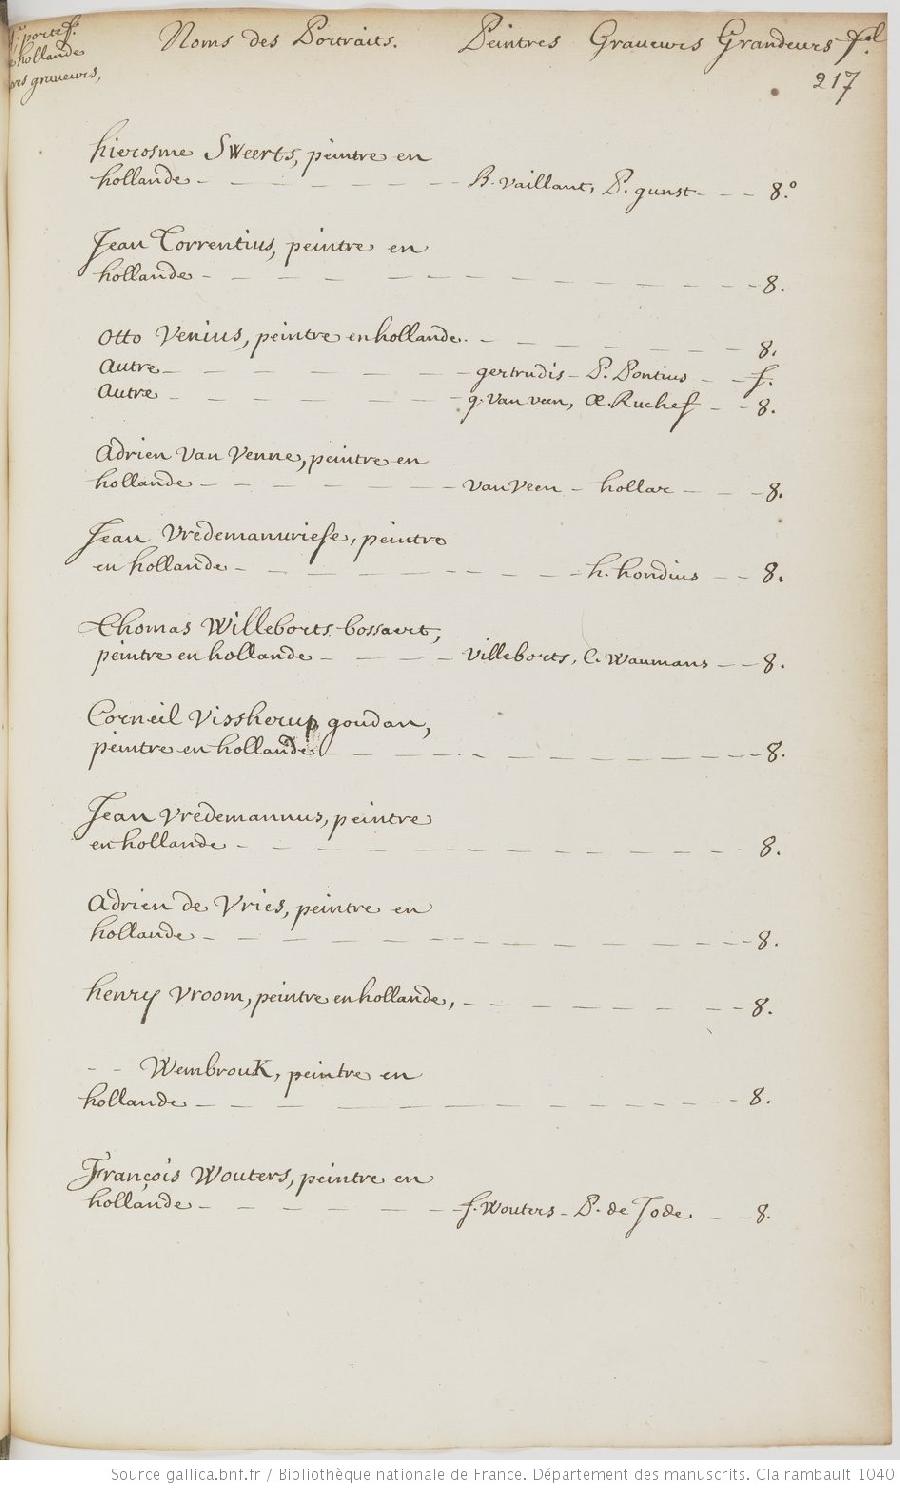 portef.
hollande
graveurs,
Noms des Portraits. Peintres Graveurs Grandeurs fol
217
hierosme Sweerts, peintre en
hollande - - - - - - - B. vaillant, P. gunst - - - 8.º
Jean Torrentius, peintre en
hollande - - - - - - - - - - - - - 8.
Otto Venius, peintre en hollande. - - - - - - - 8.
Autre - - - - - - - gertrudis - P. Pontius - - f.
Autre - - - - - - - g. van veen, Æ. Ruchef - - 8.
Adrien Van Venne, peintre en
hollande - - - - - - - van Veen - hollar - - - 8.
Jean Vredemanuriese, peintre
en hollande - - - - - - - - - h. hondius - - 8.
Thomas Willeborts bossaert,
peintre en hollande - - - - Villeborts, C. Waumans - - 8.
Corneil Vissherup goudan,
peintre en hollande - - - - - - - - - - 8.
Jean Vredemannus, peintre
en hollande - - - - - - - - - - - - 8.
Adrien de Vries, peintre en
hollande - - - - - - - - - - - - - 8.
henry Vroom, peintre en hollande, - - - - - - - 8.
- - Wembrouk, peintre en
hollande - - - - - - - - - - - - - 8.
François Wouters, peintre en
hollande - - - - - - - f. Wouters - P. de Jode. - 8.
Source gallica.bnf.fr / Bibliothèque nationale de France. Département des manuscrits. Clairambault 1040